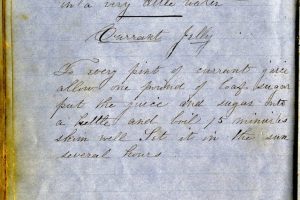 in a very little water
Currant Jelly
To every pint of currant juice
allow one pound of loaf sugar
put the juice and sugar into
a kettle and boil 15 minutes
skim well Set it in the sun
several hours